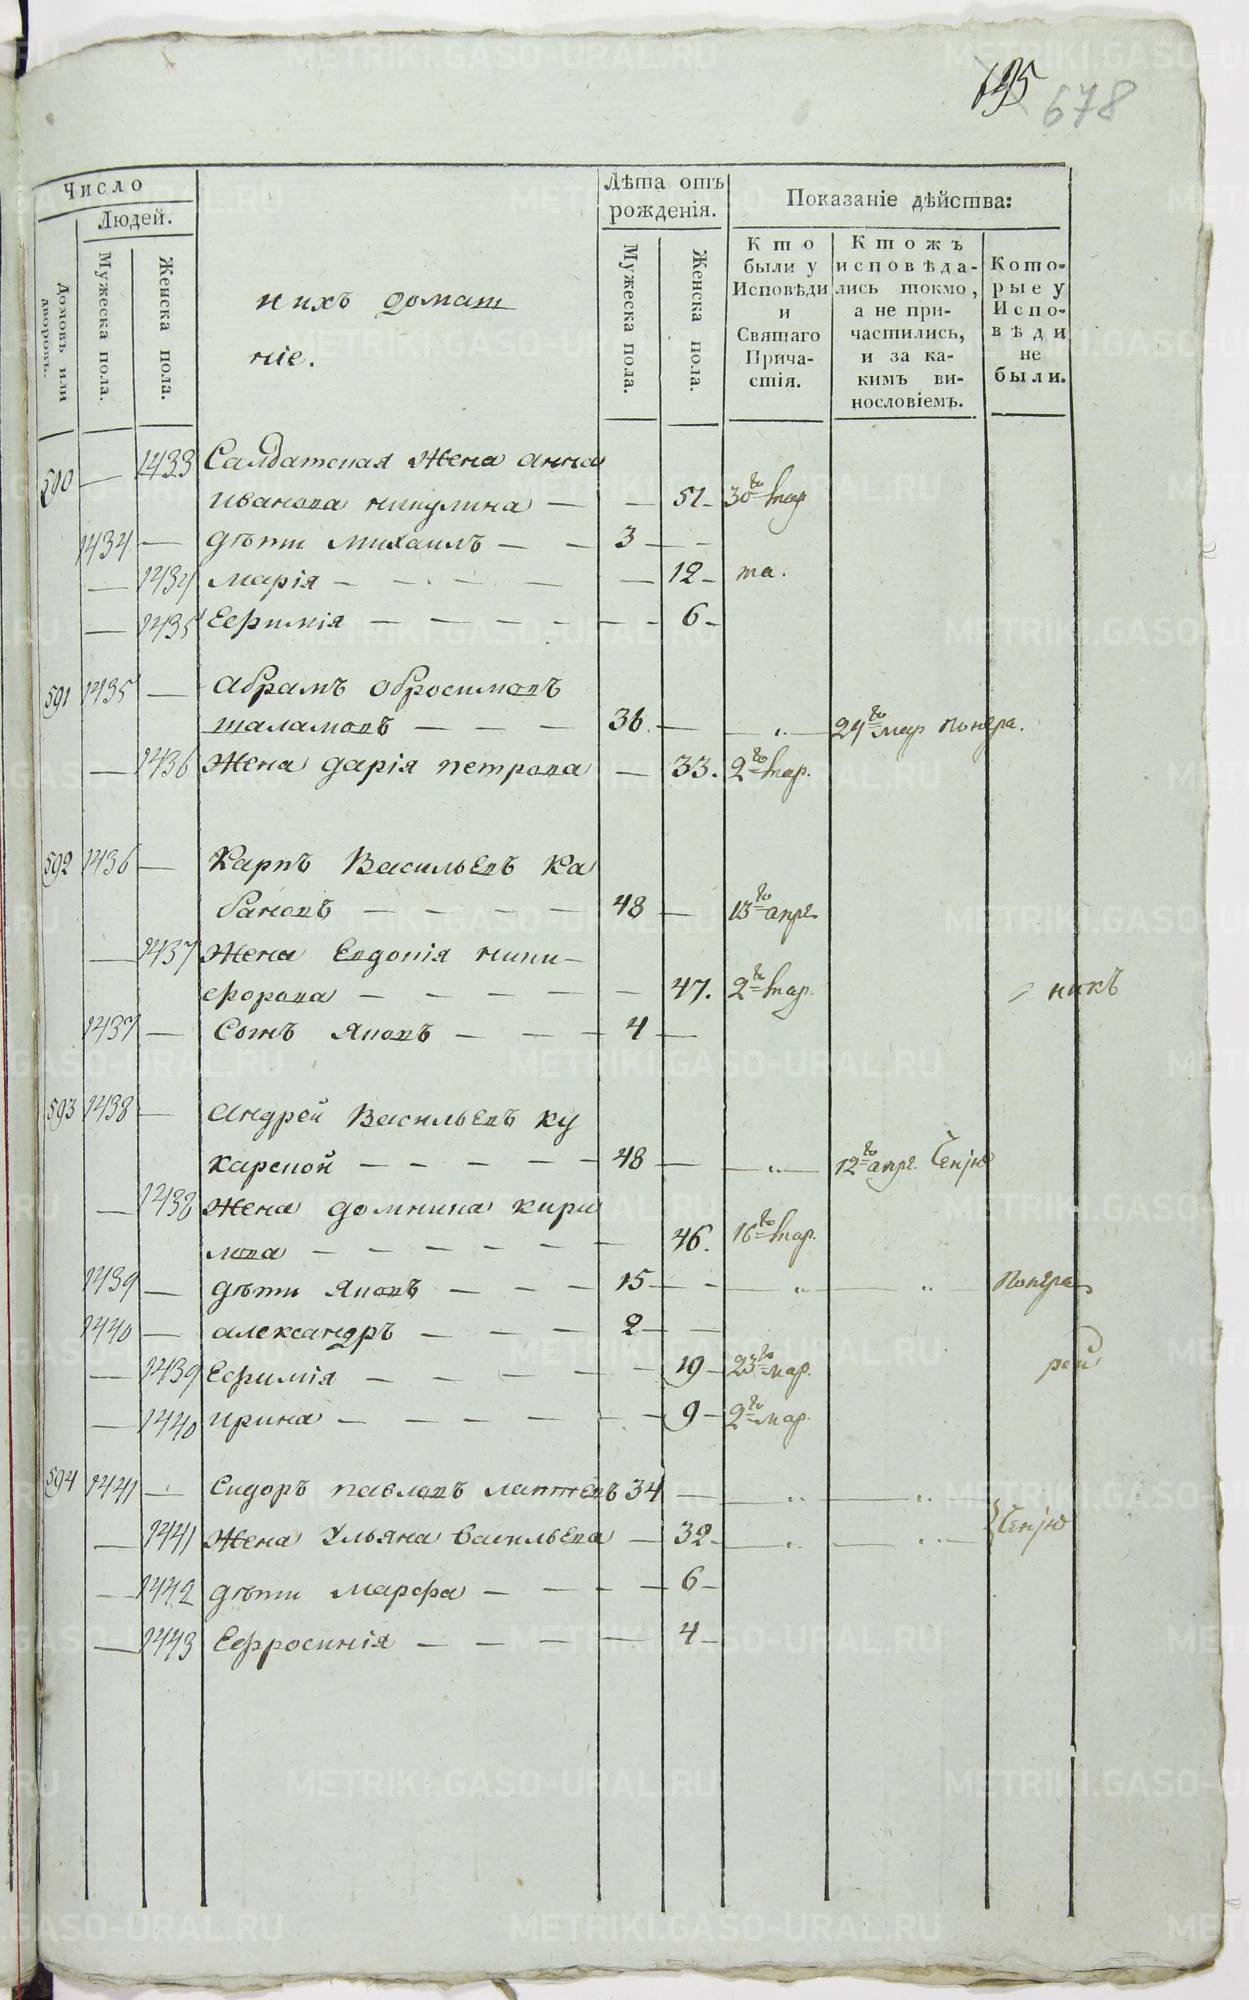 695 678
Число
Людей.
Домовъ или дворовъ.
Мужеска пола.
Женска пола.
и ихъ домаш
ніе.
Лѣта отъ
рожденія.
Мужеска пола.
Женска пола.
Показаніе дѣйства:
Кто
были у
Исповѣди
и
Святаго
Прича-
стія.
Ктожъ
исповѣда-
лись токмо,
а не при-
частились,
и за ка-
кимъ ви-
нословіемъ.
Кото-
рые у
Испо-
вѣди
не
были.
590 — 1433 Салдатская жена анна
иванова никулина — — 51 30го мар
1434 — дѣти михаилъ — — 3 — —
— 1434 марія — — — — — 12 — ма.
— 1435 Еѳимія — — — — — — 6 —
591 1435 — абрамъ обросимовъ
шаламовъ — — — 36. — — „ — 24го мар
— 1436 жена дарія петрова — 33. 2го мар.
592 1436 — Карпъ Васильевъ Ка
бановъ — — — — 48 — 13го апре
— 1437 жена Евдокія ники-
форова — — — — — 47. 2го мар.
никъ
1437 — Сынъ Яковъ — — — 4 —
593 1438 — андрей Васильевъ ку
карской — — — — — 48 — — „ — 12го апре.
— 1438 жена домника кири
лова — — — — — — 46. 16го мар.
1439 — дѣти Яковъ — — — 15 — — „ — „ —
1440 — александръ — — — 2 — —
— 1439 Еѳимія — — — — — 19 — 23го мар.
рей
— 1440 ирина — — — — — — 9 — 2го мар.
594 1441 — Сидоръ павловъ лаптевъ 34 — — „ — „ —
— 1441 жена Ульяна васильева — 32 — — „ — „ —
— 1442 дѣти марѳа — — — — 6 —
— 1443 Еѳросинія — — — — 4 —
METRIKI.GASO-URAL.RU